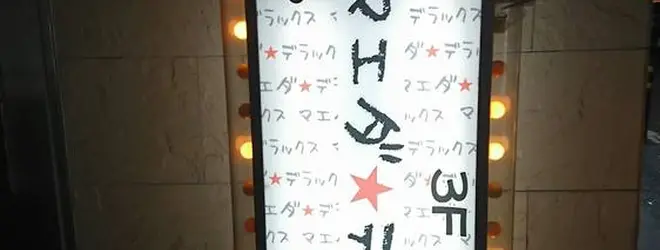 マエダ★デ
3F
デラックス マ
ダ★デラック
エダ★デ
クス マエ
デラックス
★デラック
エダ★デ
クス マエ
デラックス
ダ★デラ
マエダ★
ックス マ
デラックス
ダ★
ックス